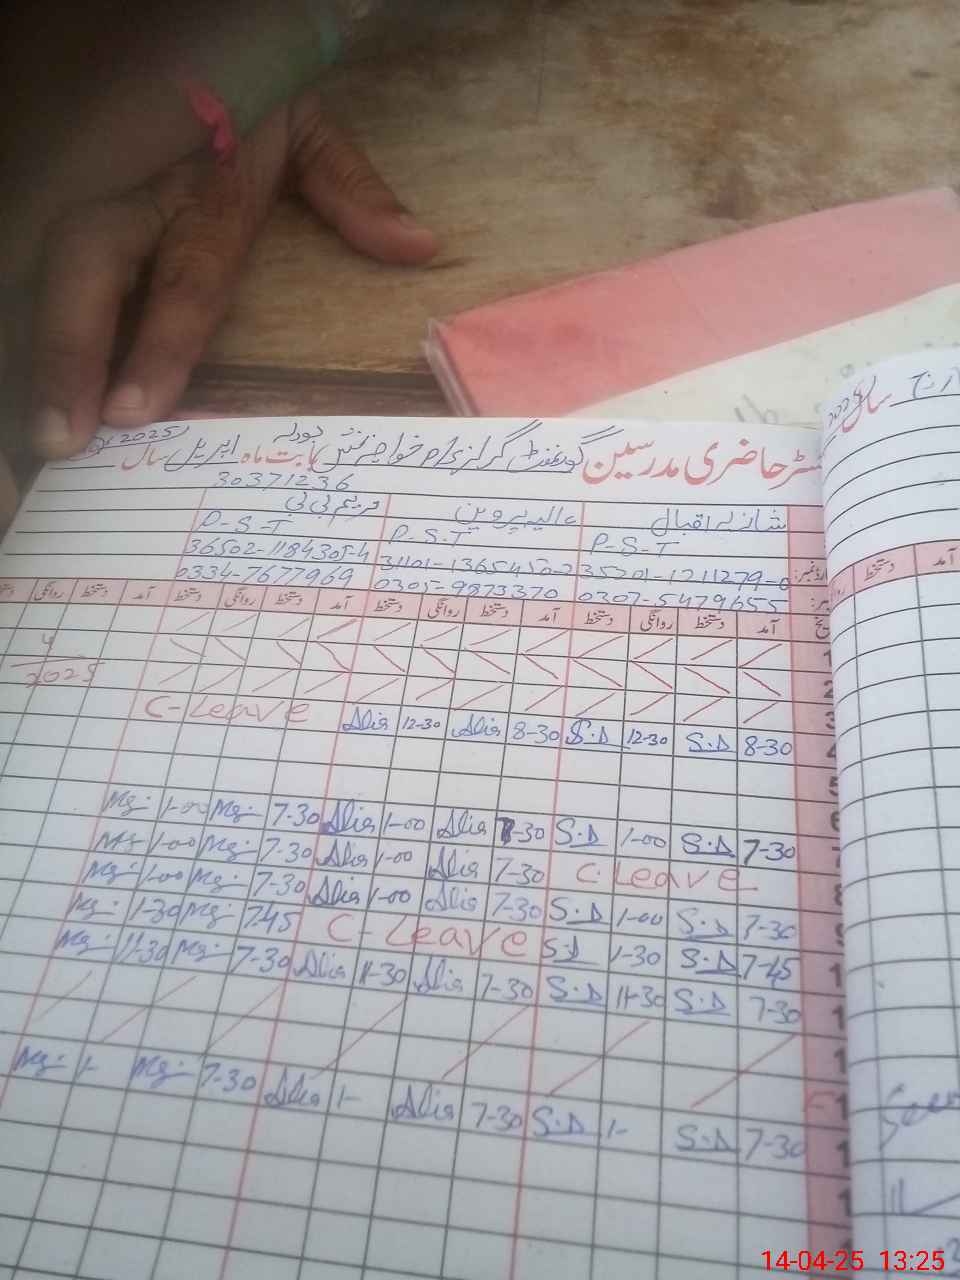 رجسٹر حاضری مدرسین گورنمنٹ گرلز بابت ماہ اپریل سال 2025
30371236
شازیہ اقبال عالیہ پروین مریم بی بی
P-S-T P-S-T P-S-T
35201-1211279-0 31101- 36502-1184305-4
0307-5479655 0305-9873370 0334-7677969
آمد دستخط روانگی دستخط آمد دستخط روانگی دستخط آمد دستخط روانگی دستخط آمد دستخط روانگی
1
2
4
2025
3
4 8-30 S.D 12-30 S.D 8-30 Alia 12-30 Alia C-Leave
5
6
7 7-30 S.D 1-00 S.D 7-30 Alia 1-00 Alia 7-30 Mg: 1-00 Mg:
8 C-Leave 7-30 Alia 1-00 Alia 7-30 Mg: 1-00 Mg:
9 7-30 S.D 1-00 S.D 7-30 Alia 1-00 Alia 7-30 Mg: 1-00 Mg:
1 7-45 S.D 1-30 S.D C-Leave 7-45 Mg: 1-30 Mg:
1 7-30 S.D 11-30 S.D 7-30 Alia 11-30 Alia 7-30 Mg: 11-30 Mg:
1
1
1 7-30 S.D 1- S.D 7-30 Alia 1- Alia 7-30 Mg: 1- Mg:
1
1
سال 2025
آمد دستخط
Seen
14-04-25 13:25